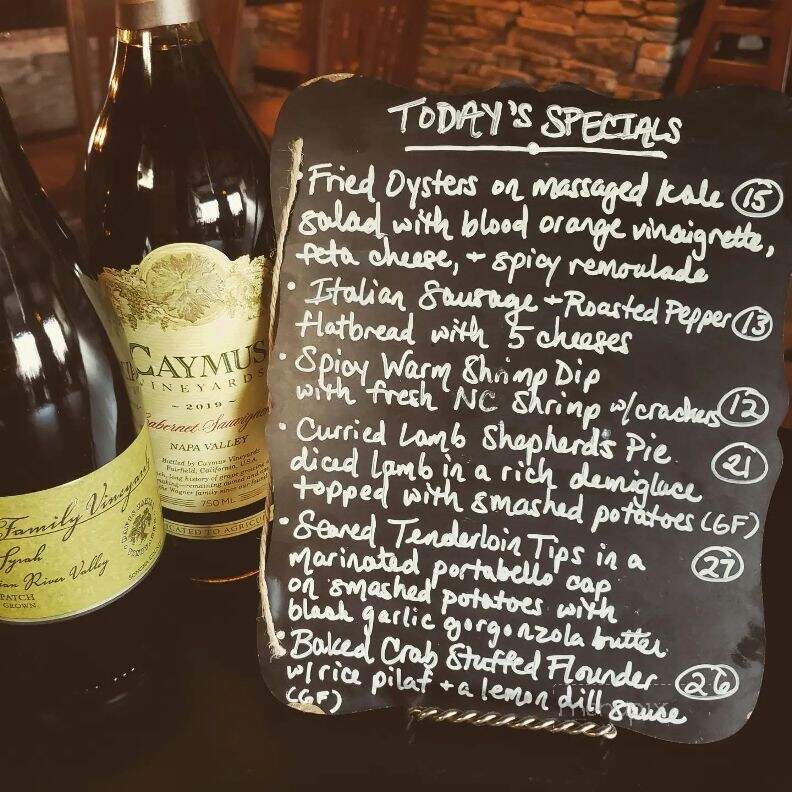 TODAY'S SPECIALS
• Fried Oysters on massaged Kale (15)
salad with blood orange vinaigrette,
feta cheese, + spicy remoulade
• Italian Sausage + Roasted Pepper (13)
flatbread with 5 cheeses
• Spicy Warm Shrimp Dip
with fresh NC Shrimp w/crackers (12)
• Curried Lamb Shepherd's Pie (21)
diced lamb in a rich demiglace
topped with smashed potatoes (GF)
• Seared Tenderloin Tips in a (27)
marinated portabello cap
on smashed potatoes with
black garlic gorgonzola butter
• Baked Crab Stuffed Flounder (26)
w/rice pilaf + a lemon dill sauce
(GF)
CAYMUS
VINEYARDS
~ 2019 ~
Cabernet Sauvignon
NAPA VALLEY
Bottled by Caymus Vineyards
Fairfield, California, U.S.A.
750 ML
Family Vineyard
Syrah
River Valley
PATCH
GROWN